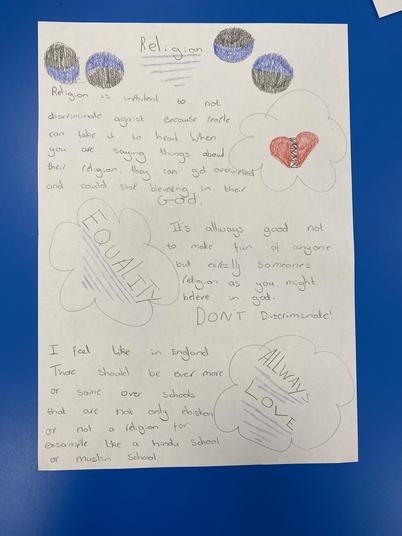 Religion
Religion is imtutent to not
discriminate agaist Because People
can take it to heart. When
you are saying things about
their religion, they can get overwelmed
and could stop bleveing in their
God.
EQUALITY
It's allways good not
to make fun of anyone
but someones
religion as you might
beleve in god.
DON'T Discriminate!
I feel like in England
There should be over more
or some over schools
that are not only christen
or not a religion for
exsample like a hindu School
or muslin School
ALLWAYS
LOVE